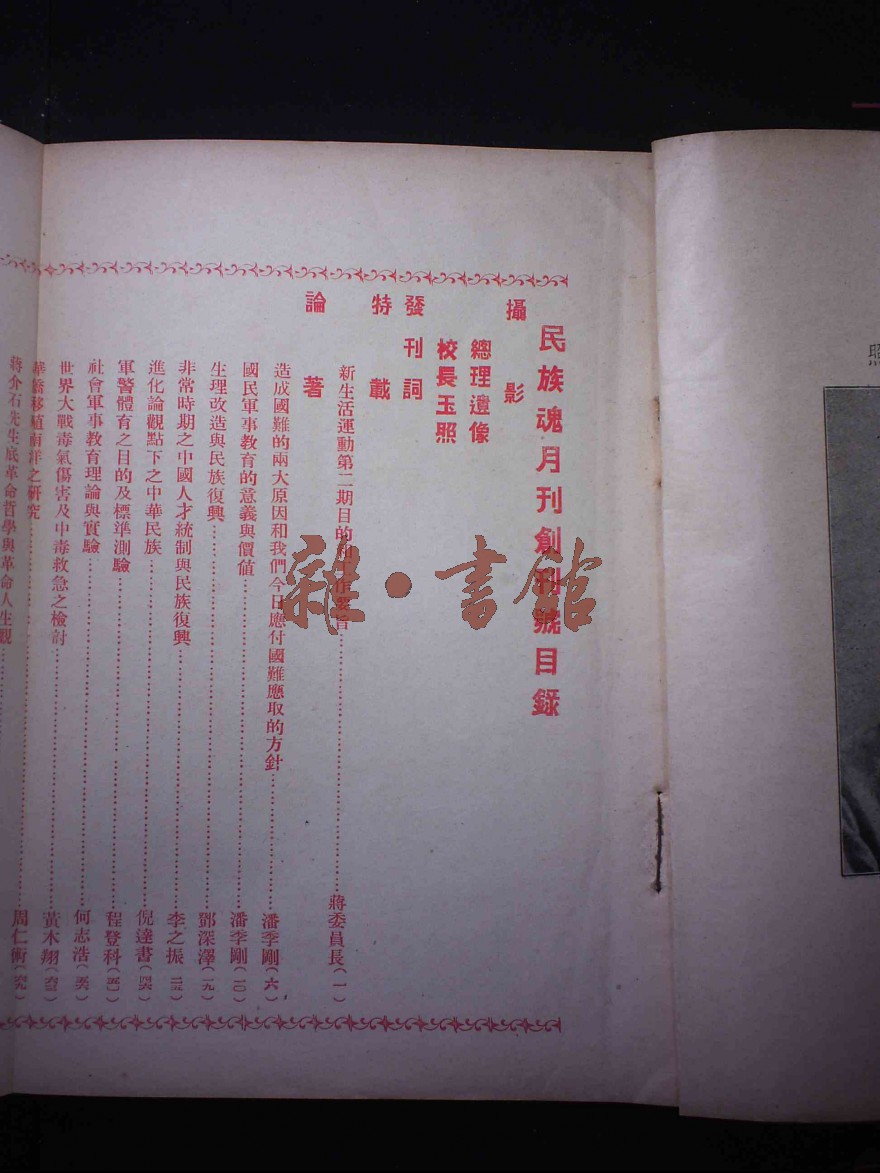 民族魂月刊創刊號目錄
攝影
總理遺像
校長玉照
發刊詞
特載
新生活運動第二期目的和工作要旨……蔣委員長(一)
論著
造成國難的兩大原因和我們今日應付國難應取的方針……潘季剛(六)
國民軍事教育的意義與價值……潘季剛(一〇)
生理改造與民族復興……鄧深澤(一九)
非常時期之中國人才統制與民族復興……李之振(二五)
進化論觀點下之中華民族……倪達書(四六)
軍警體育之目的及標準測驗……程登科(五一)
社會軍事教育理論與實驗……何志浩(五六)
世界大戰毒氣傷害及中毒救急之檢討……黃木翔(六三)
華僑移殖南洋之研究……周仁術(六九)
蔣介石先生底革命哲學與革命人生觀……
照
雜·書館